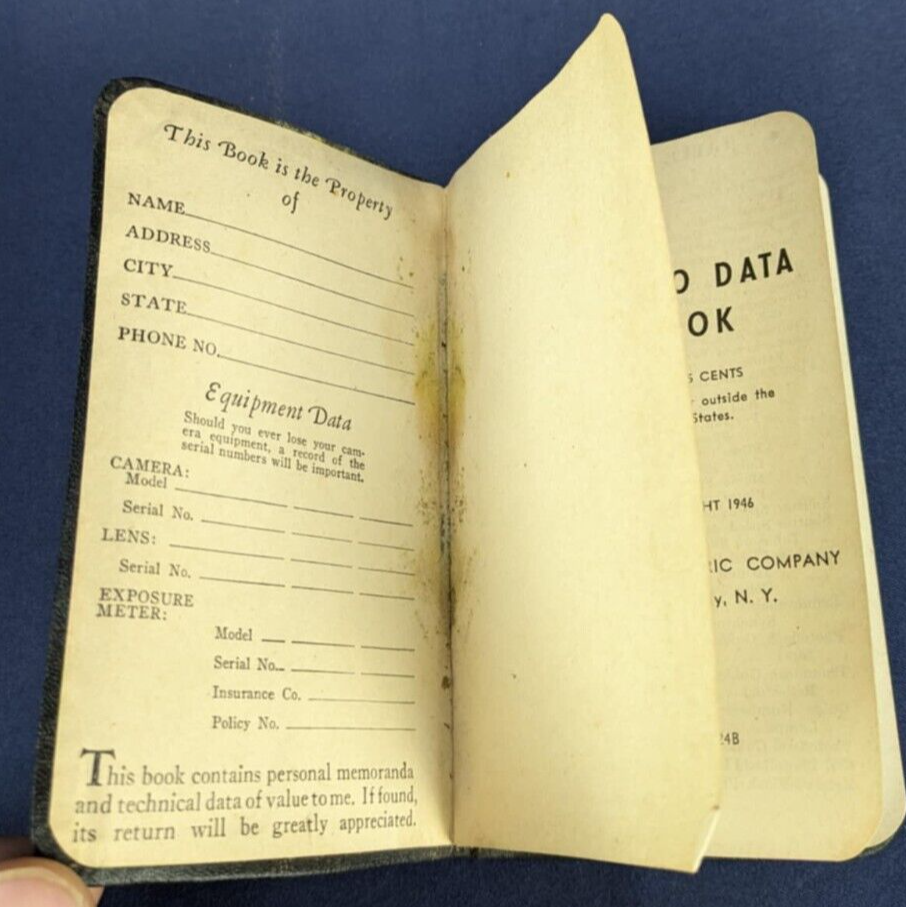 This Book is the Property
of
NAME
ADDRESS
CITY
STATE
PHONE NO.
Equipment Data
Should you ever lose your cam-
era equipment, a record of the
serial numbers will be important.
CAMERA:
Model
Serial No.
LENS:
Serial No.
EXPOSURE
METER:
Model
Serial No.
Insurance Co.
Policy No.
This book contains personal memoranda
and technical data of value to me. If found,
its return will be greatly appreciated.
O DATA
OK
CENTS
outside the
States.
HT 1946
RIC COMPANY
y, N. Y.
24B